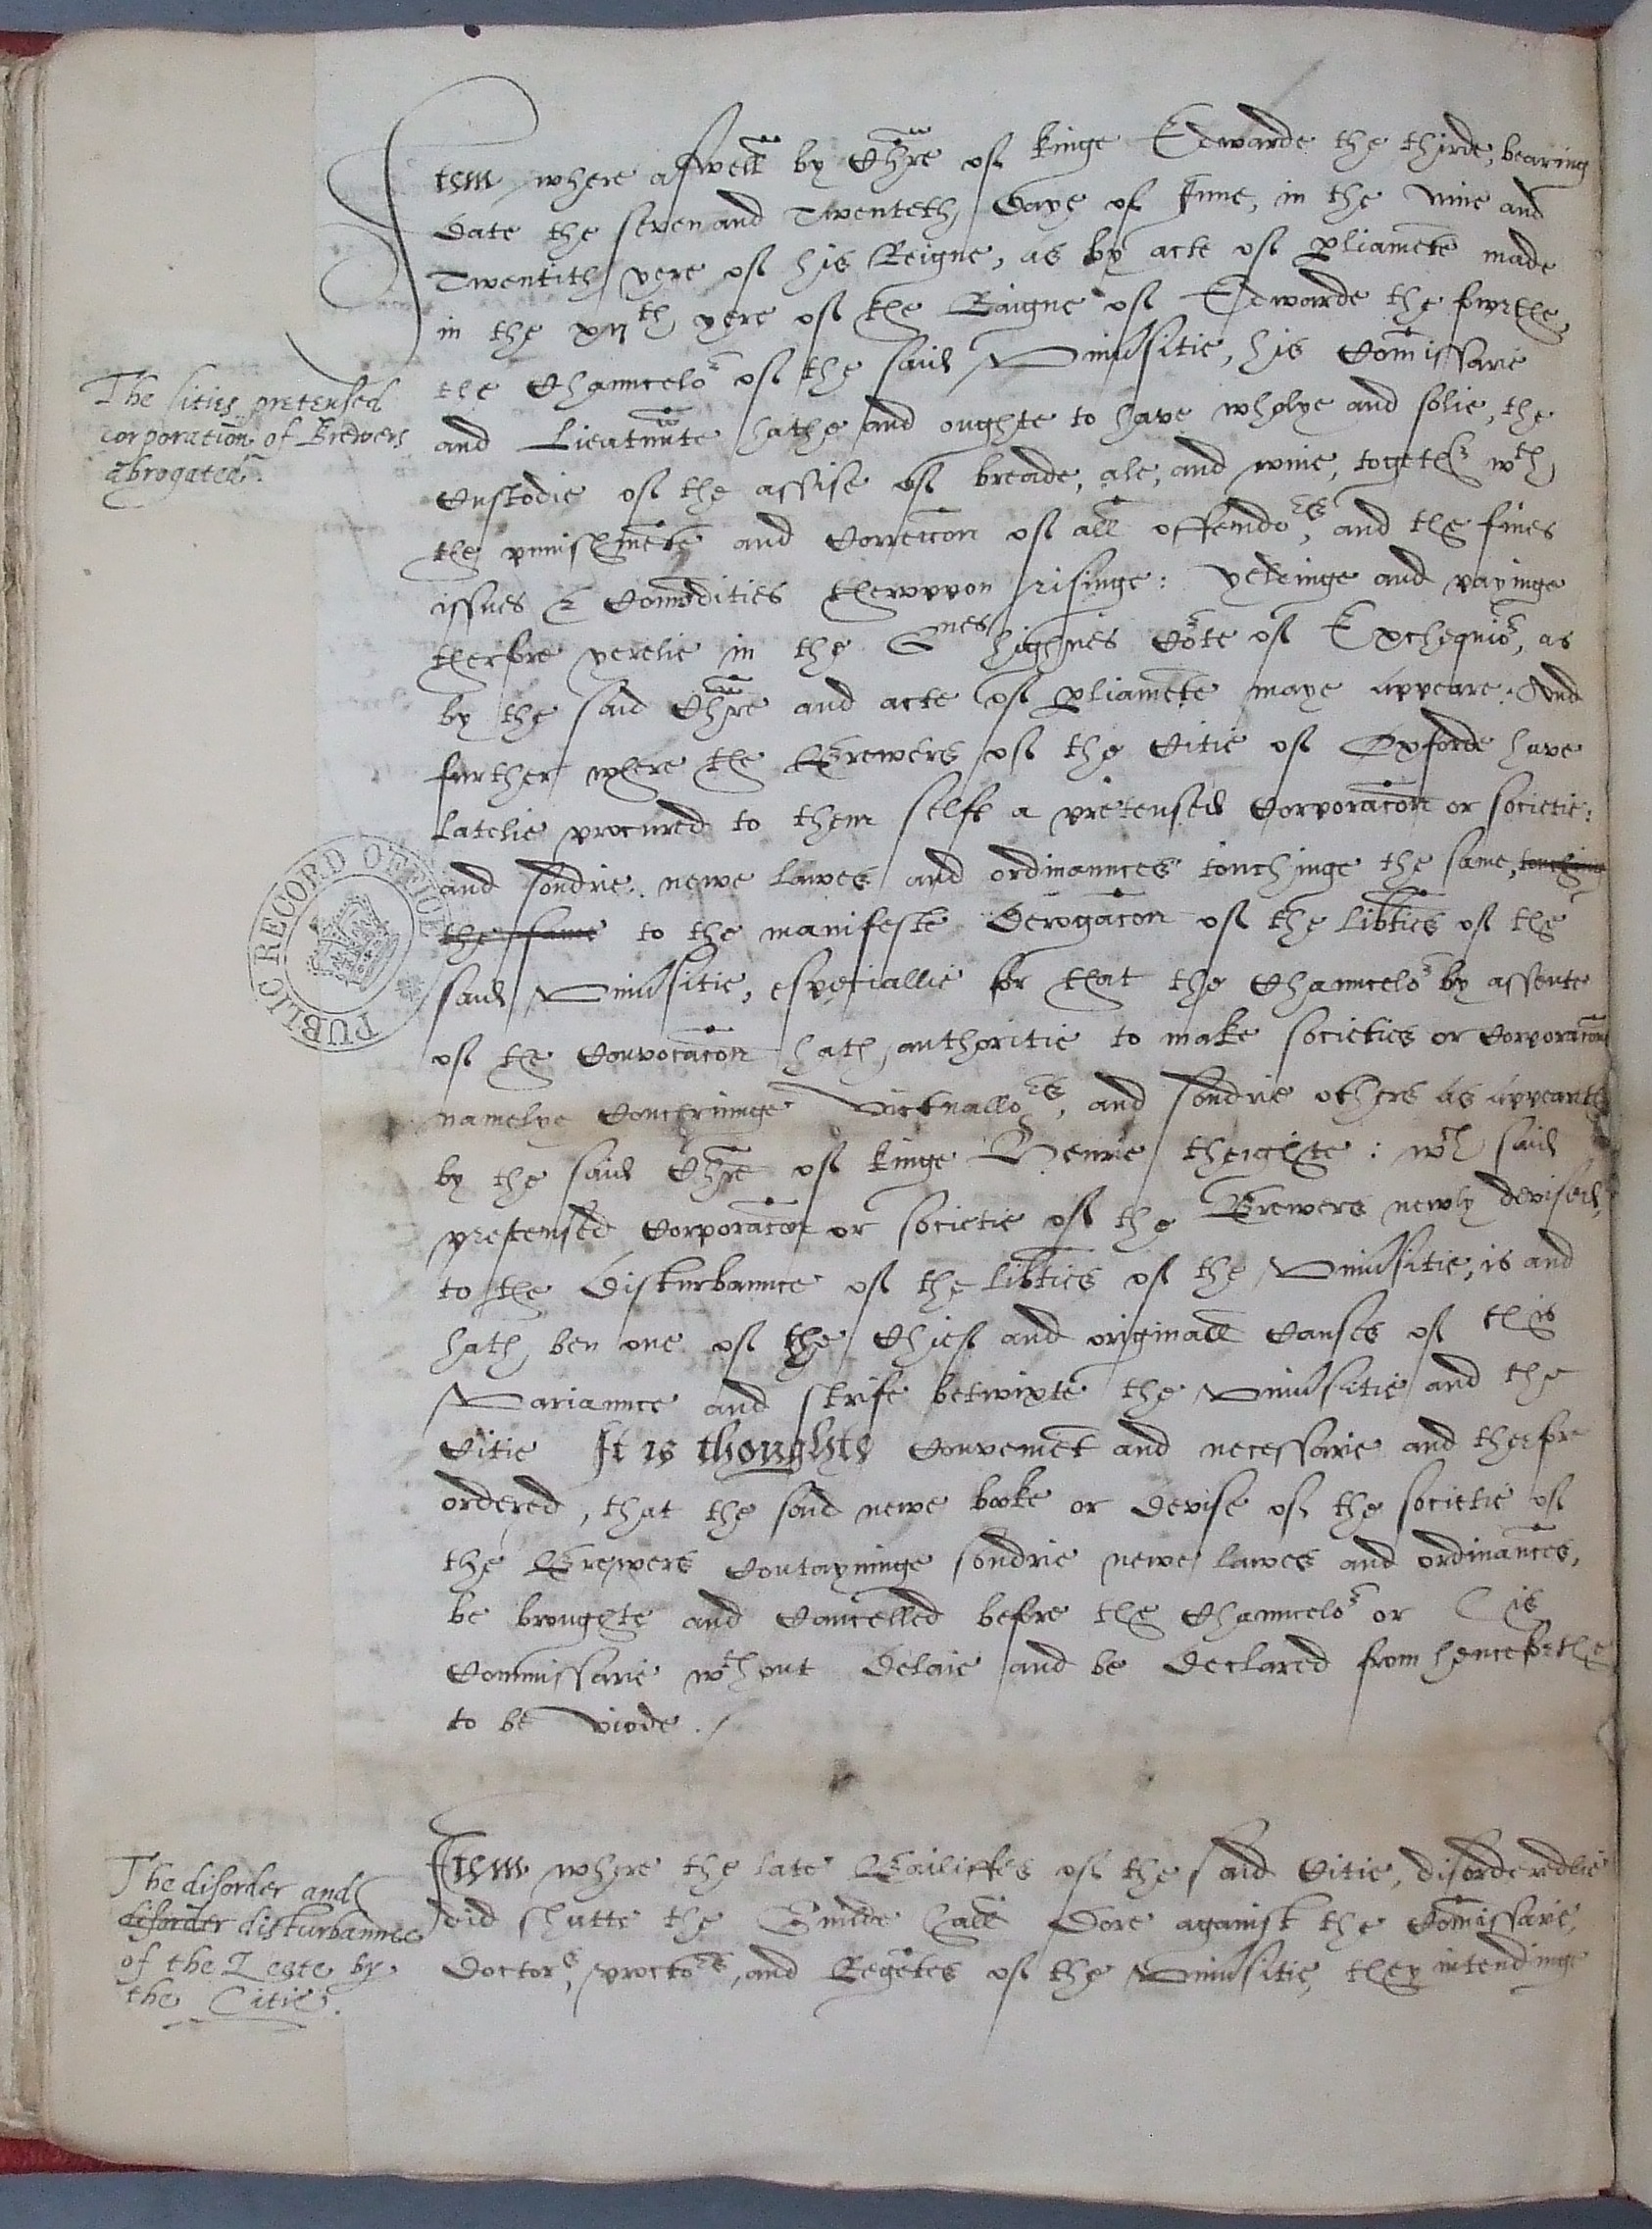 Itm where aswell by Chre of kinge Edwarde the thirde, bearing
date the seven and Twenteth daye of June, in the nine and
Twentith yere of his Reigne, as by acte of pliamete made
in the xijth yere of the Raigne of Edwarde the fourthe
the Chauncelor of the said Univsitie, his Comissarie
The Cities pretensed
corporation of Brewers
abrogated.
and Lieutnnte hathe and oughte to have wholye and solie, the
Custodie of the assise of breade, ale, and wine, togethr wth
the punishmete and Correccon of all offendors, and the fines
issues & Comodities therwppon risinge: yeldinge and payinge
therfore yerelie in the Qnes highnes Cote of Exchequior, as
by the said Chre and acte of pliamete maye appeare. And
further where the Brewers of the Citie of Oxforde have
latelie procured to them selfe a pretensed Corporacon or societie:
and sondrie newe lawes and ordinaunces touchinge the same, touchinge
the same to the manifeste Derogacon of the libties of the
said Univsitie, especiallie for that the Chauncelor by assente
of the Convocacon hath authoritie to make societies or Corporacons
namelye Concerninge Victuallors, and sondrie others as appearith
by the said Chre of kinge Henrie theighte: wch said
pretensed Corporacon or societie of the Brewers newly devised,
to the Disturbaunce of the libties of the Univsitie, is and
hath ben one of the Chief and originall Causes of this
Variaunce and strife betwixte the Univsitie and the
Citie It is thoughte Convenient and necessarie and therfore
ordered, that the said newe booke or devise of the societie of
the Brewers Contayninge sondrie newe lawes and ordinances,
be broughte and Cancelled before the Chauncelor or his
Commissarie wthout Delaie and be Declared from henceforthe
to be viode.
Itm where the late Bailiffes of the said Citie, disorderedlie
did shutte the Guilde hall Dore against the Comissarie,
Doctors, proctors, and Regetes of the Univsitie, they intendinge
The disorder and
disorder disturbannce
of the Leete by
the Citie.
PUBLIC RECORD OFFICE